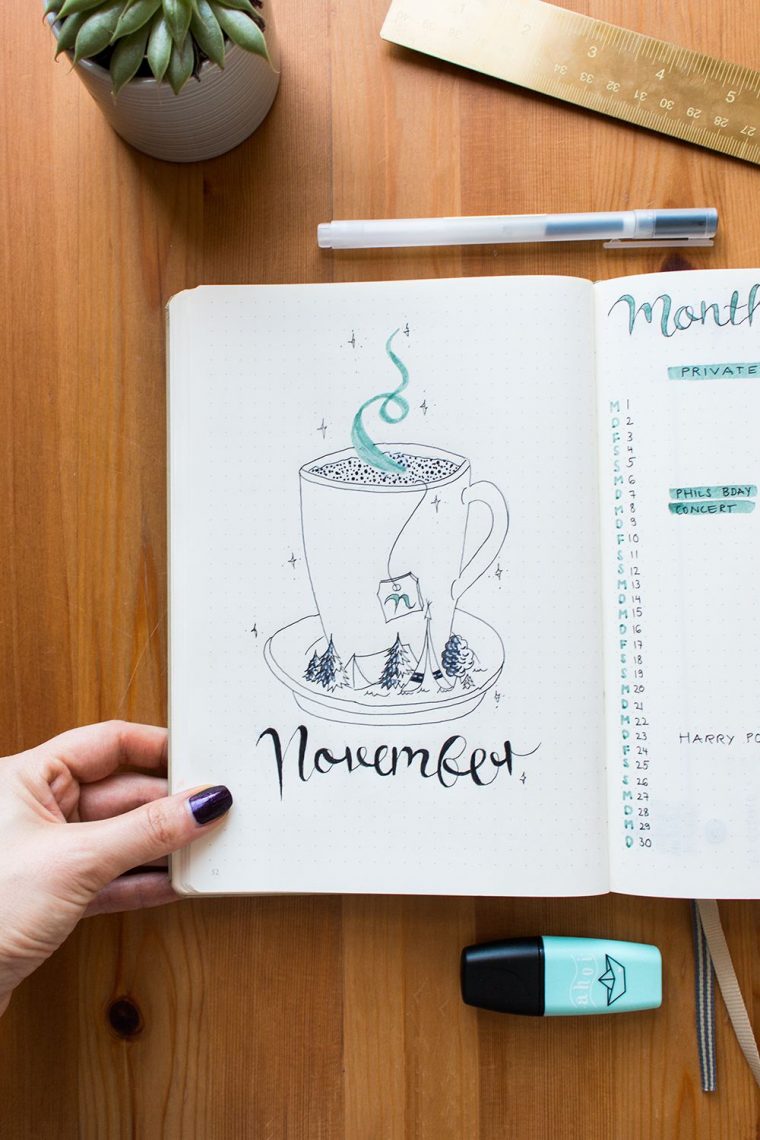 1 2 3 4 5
34 33 32 31 30 29 28 27
n
November
52
Month
PRIVATE
M 1
D 2
F 3
S 4
S 5
M 6
D 7
PHILS BDAY
M 8
CONCERT
D 9
F 10
S 11
S 12
M 13
D 14
M 15
D 16
F 17
S 18
S 19
M 20
D 21
M 22
D 23 HARRY PO
F 24
S 25
S 26
M 27
D 28
M 29
D 30
ahoi